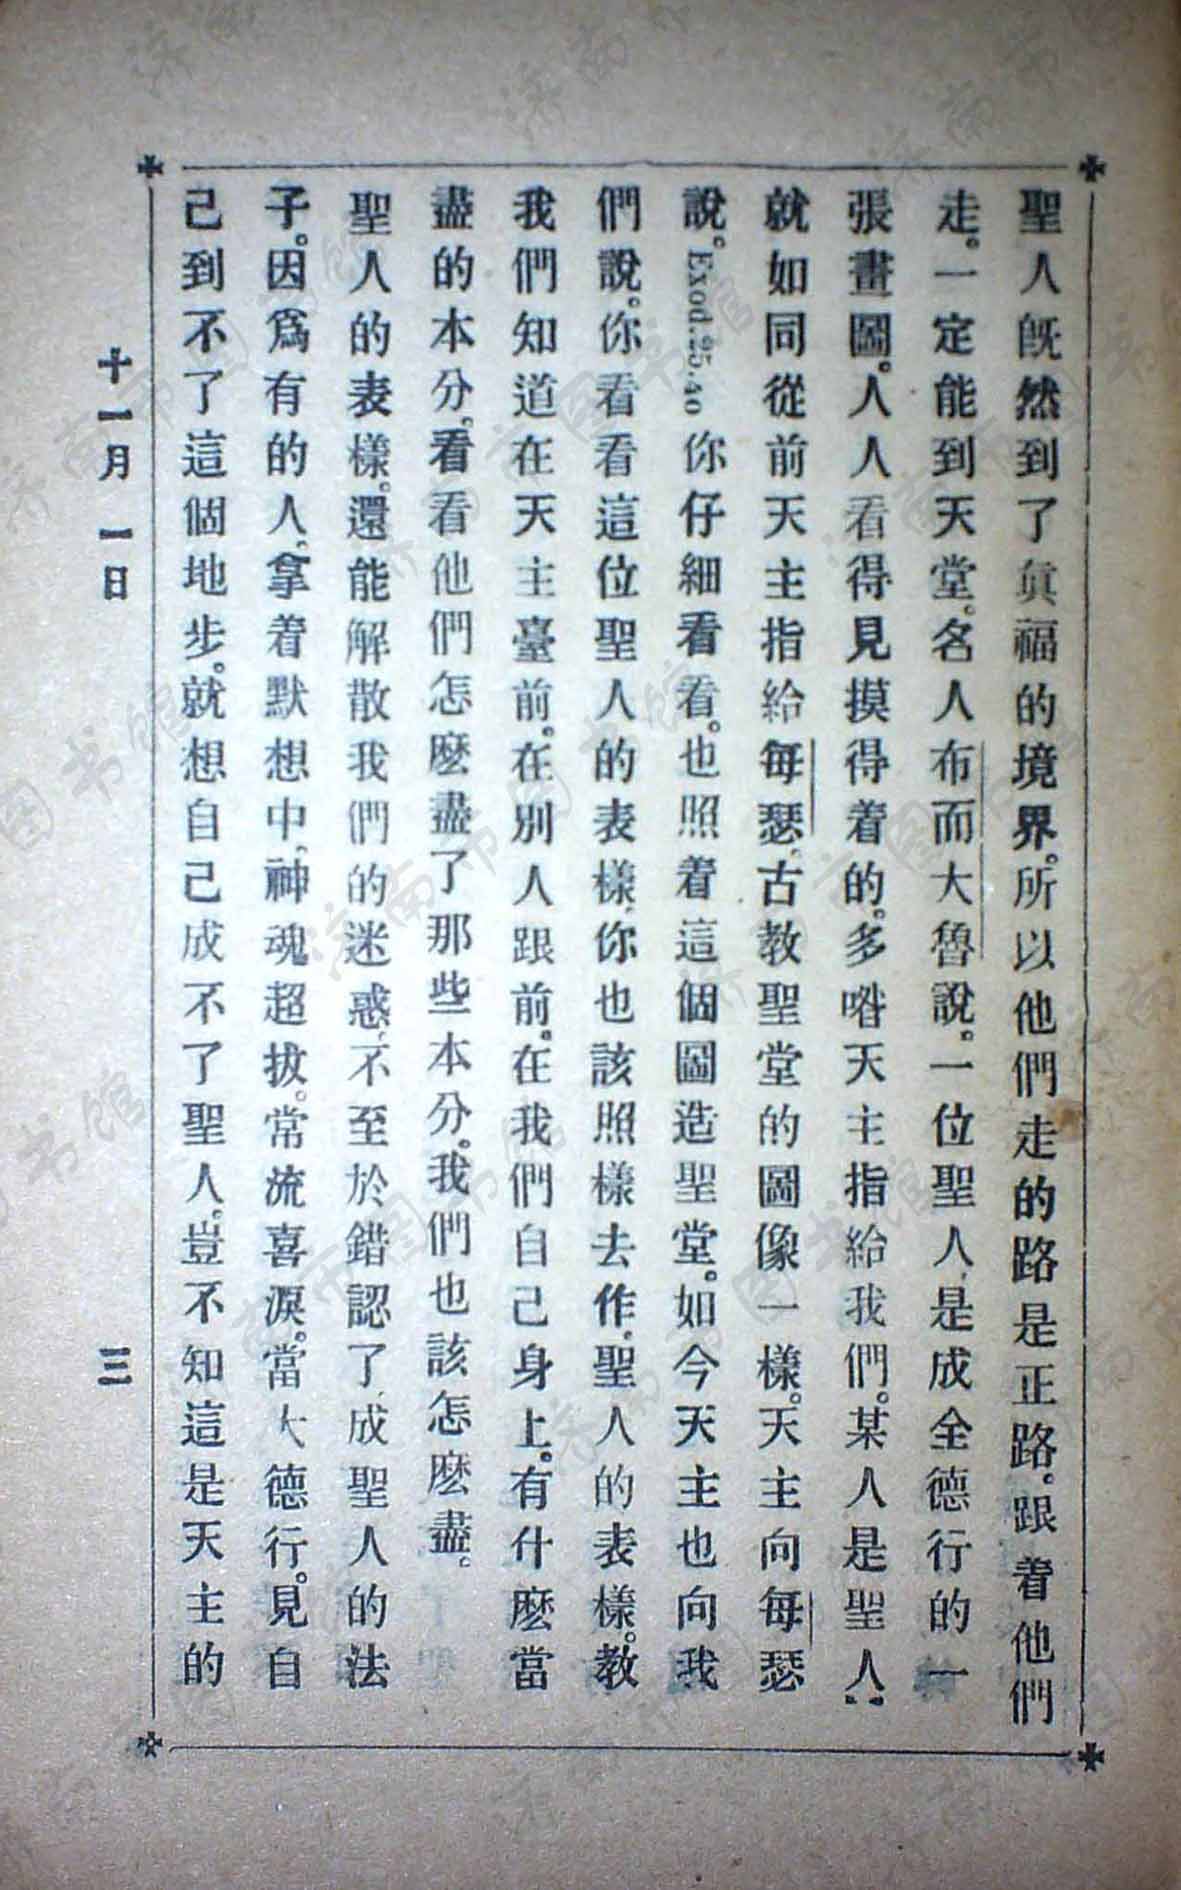 聖人旣然到了眞福的境界。所以他們走的路是正路。跟着他們
走。一定能到天堂。名人布而大魯說。一位聖人、是成全德行的一
張畫圖。人人看得見摸得着的。多喒天主指給我們。某人是聖人：
就如同從前天主指給每瑟、古教聖堂的圖像一樣。天主向每瑟
說。Exod. 25. 40 你仔細看看。也照着這個圖造聖堂。如今天主也向我
們說。你看看這位聖人的表樣、你也該照樣去作。聖人的表樣。教
我們知道在天主臺前。在別人跟前。在我們自己身上。有什麽當
盡的本分。看看他們怎麽盡了那些本分。我們也該怎麽盡。
聖人的表樣。還能解散我們的迷惑、不至於錯認了、成聖人的法
子。因爲有的人、拿着默想中、神魂超拔。常流喜淚。當大德行。見自
己到不了這個地步。就想自己成不了聖人。豈不知這是天主的
十一月 一日 三